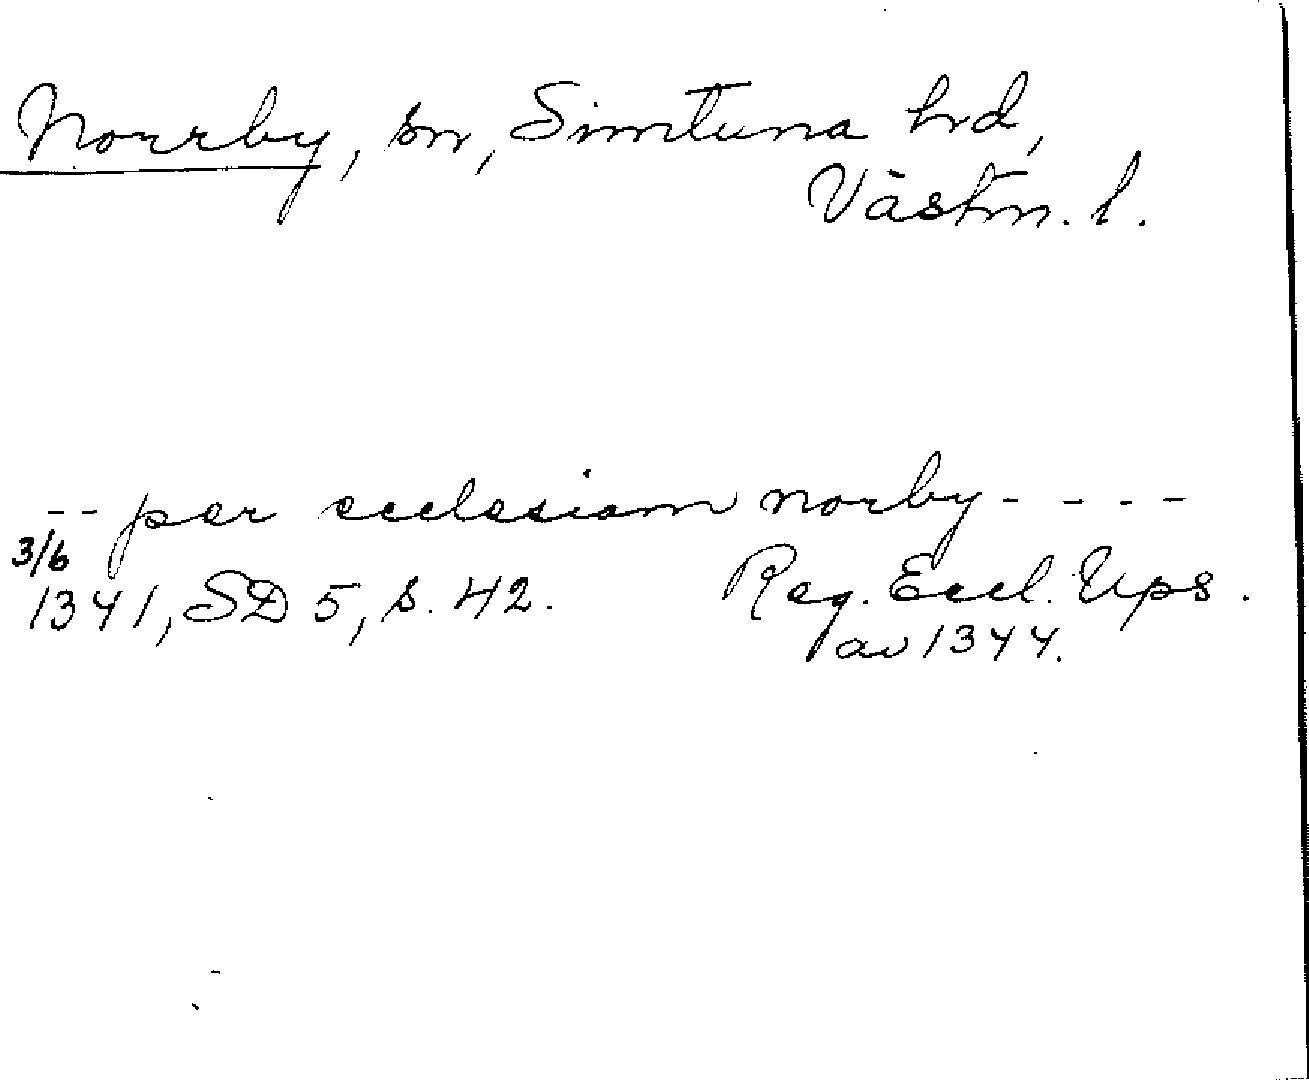 Norrby, sn, Simtuna hrd,
Västm. l.
-- per ecclesiam norby - - - -
3/6
1341, SD 5, s. 42. Reg. Eccl. Ups.
av 1344.